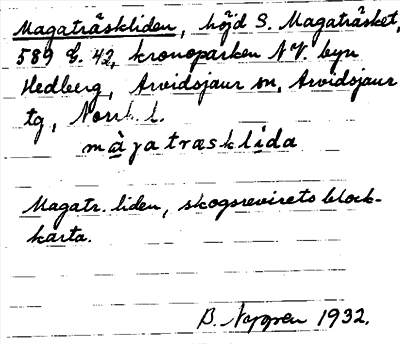 Magaträskliden, höjd S. Magaträsket,
589 E. 42, kronoparken NV. byn
Hedberg, Arvidsjaur sn, Arvidsjaur
tg, Norrb. l.
màgatrœsklida
Magatr. liden, skogsrevirets block-
karta.
B. Nygren 1932.